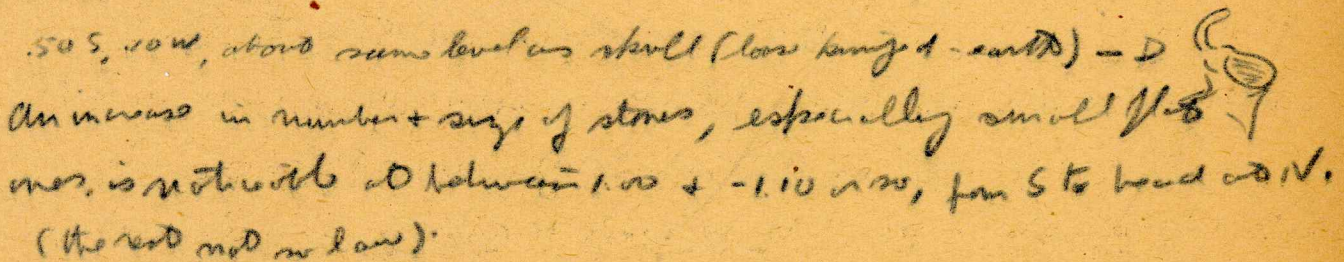 .50 S, 20 W, about same level as skull (loose earth) – D
An increase in number + size of stones, especially small flat
ones, is noticeable at between 1.00 + -1.10 or so, from S to head at N.
(the rest not so low).